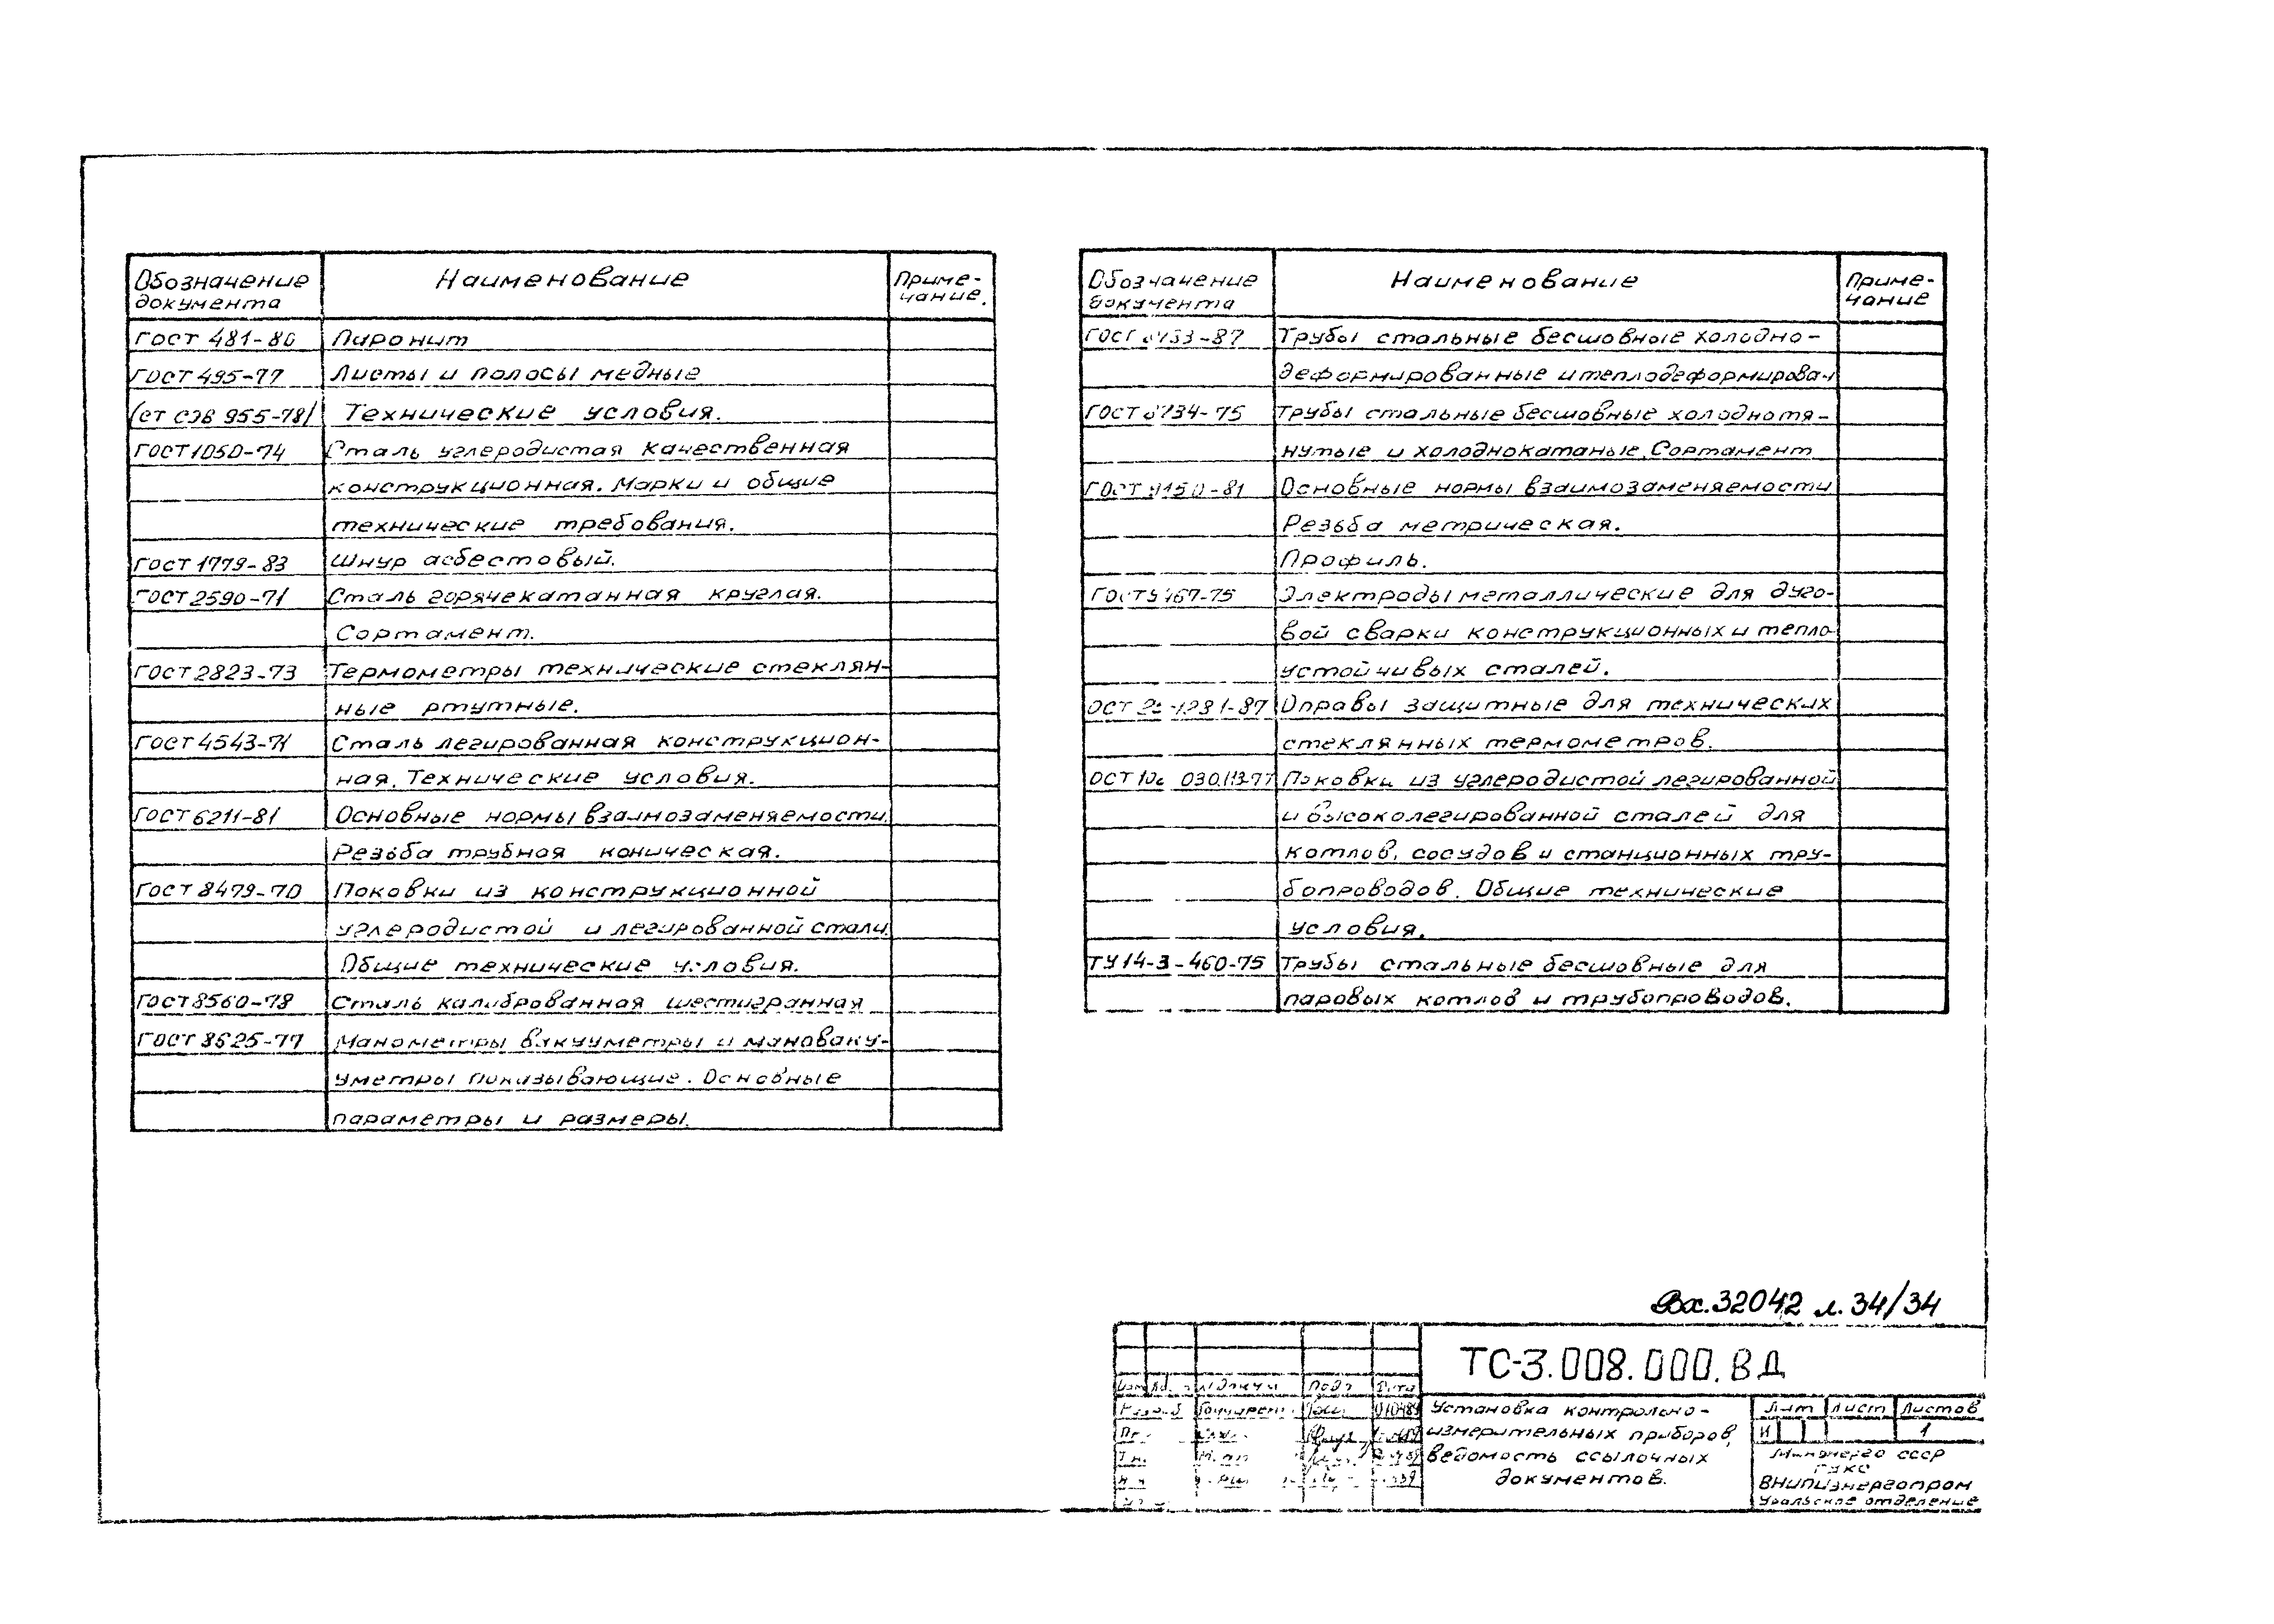 Обозначение
документа
Наименование
Приме-
чание.
ГОСТ 481-80 Паронит
ГОСТ 495-77 Листы и полосы медные
(СТ СЭВ 955-78) Технические условия.
ГОСТ 1050-74 Сталь углеродистая качественная
конструкционная. Марки и общие
технические требования.
ГОСТ 1779-83 Шнур асбестовый.
ГОСТ 2590-71 Сталь горячекатанная круглая.
Сортамент.
ГОСТ 2823-73 Термометры технические стеклян-
ные ртутные.
ГОСТ 4543-71 Сталь легированная конструкцион-
ная. Технические условия.
ГОСТ 6211-81 Основные нормы взаимозаменяемости.
Резьба трубная коническая.
ГОСТ 8479-70 Поковки из конструкционной
углеродистой и легированной стали.
Общие технические условия.
ГОСТ 8560-78 Сталь калиброванная шестигранная
ГОСТ 8625-77 Манометры вакууметры и мановаку-
уметры показывающие. Основные
параметры и размеры.
Обозначение
документа
Наименование
Приме-
чание
ГОСТ Трубы стальные бесшовные холодно-
деформированные и теплодеформирован
ГОСТ 8734-75 Трубы стальные бесшовные холоднотя-
нутые и холоднокатаные. Сортамент
ГОСТ 9150-81 Основные нормы взаимозаменяемости
Резьба метрическая.
Профиль.
ГОСТ 9467-75 Электроды металлические для дуго-
вой сварки конструкционных и тепло-
устойчивых сталей.
ОСТ Оправы защитные для технических
стеклянных термометров.
ОСТ 108.030.113-77 Поковки из углеродистой легированной
и высоколегированной сталей для
котлов, сосудов и станционных тру-
бопроводов. Общие технические
условия.
ТУ 14-3-460-75 Трубы стальные бесшовные для
паровых котлов и трубопроводов.
Вх.32042 л. 34/34
ТС-3.008.000.ВД
докум Подп Дата
Установка контрольно-
измерительных приборов,
ведомость ссылочных
документов.
Лит Лист Листов
И 1
Минэнерго СССР
ГУКС
ВНИПИэнергопром
Уральское отделение